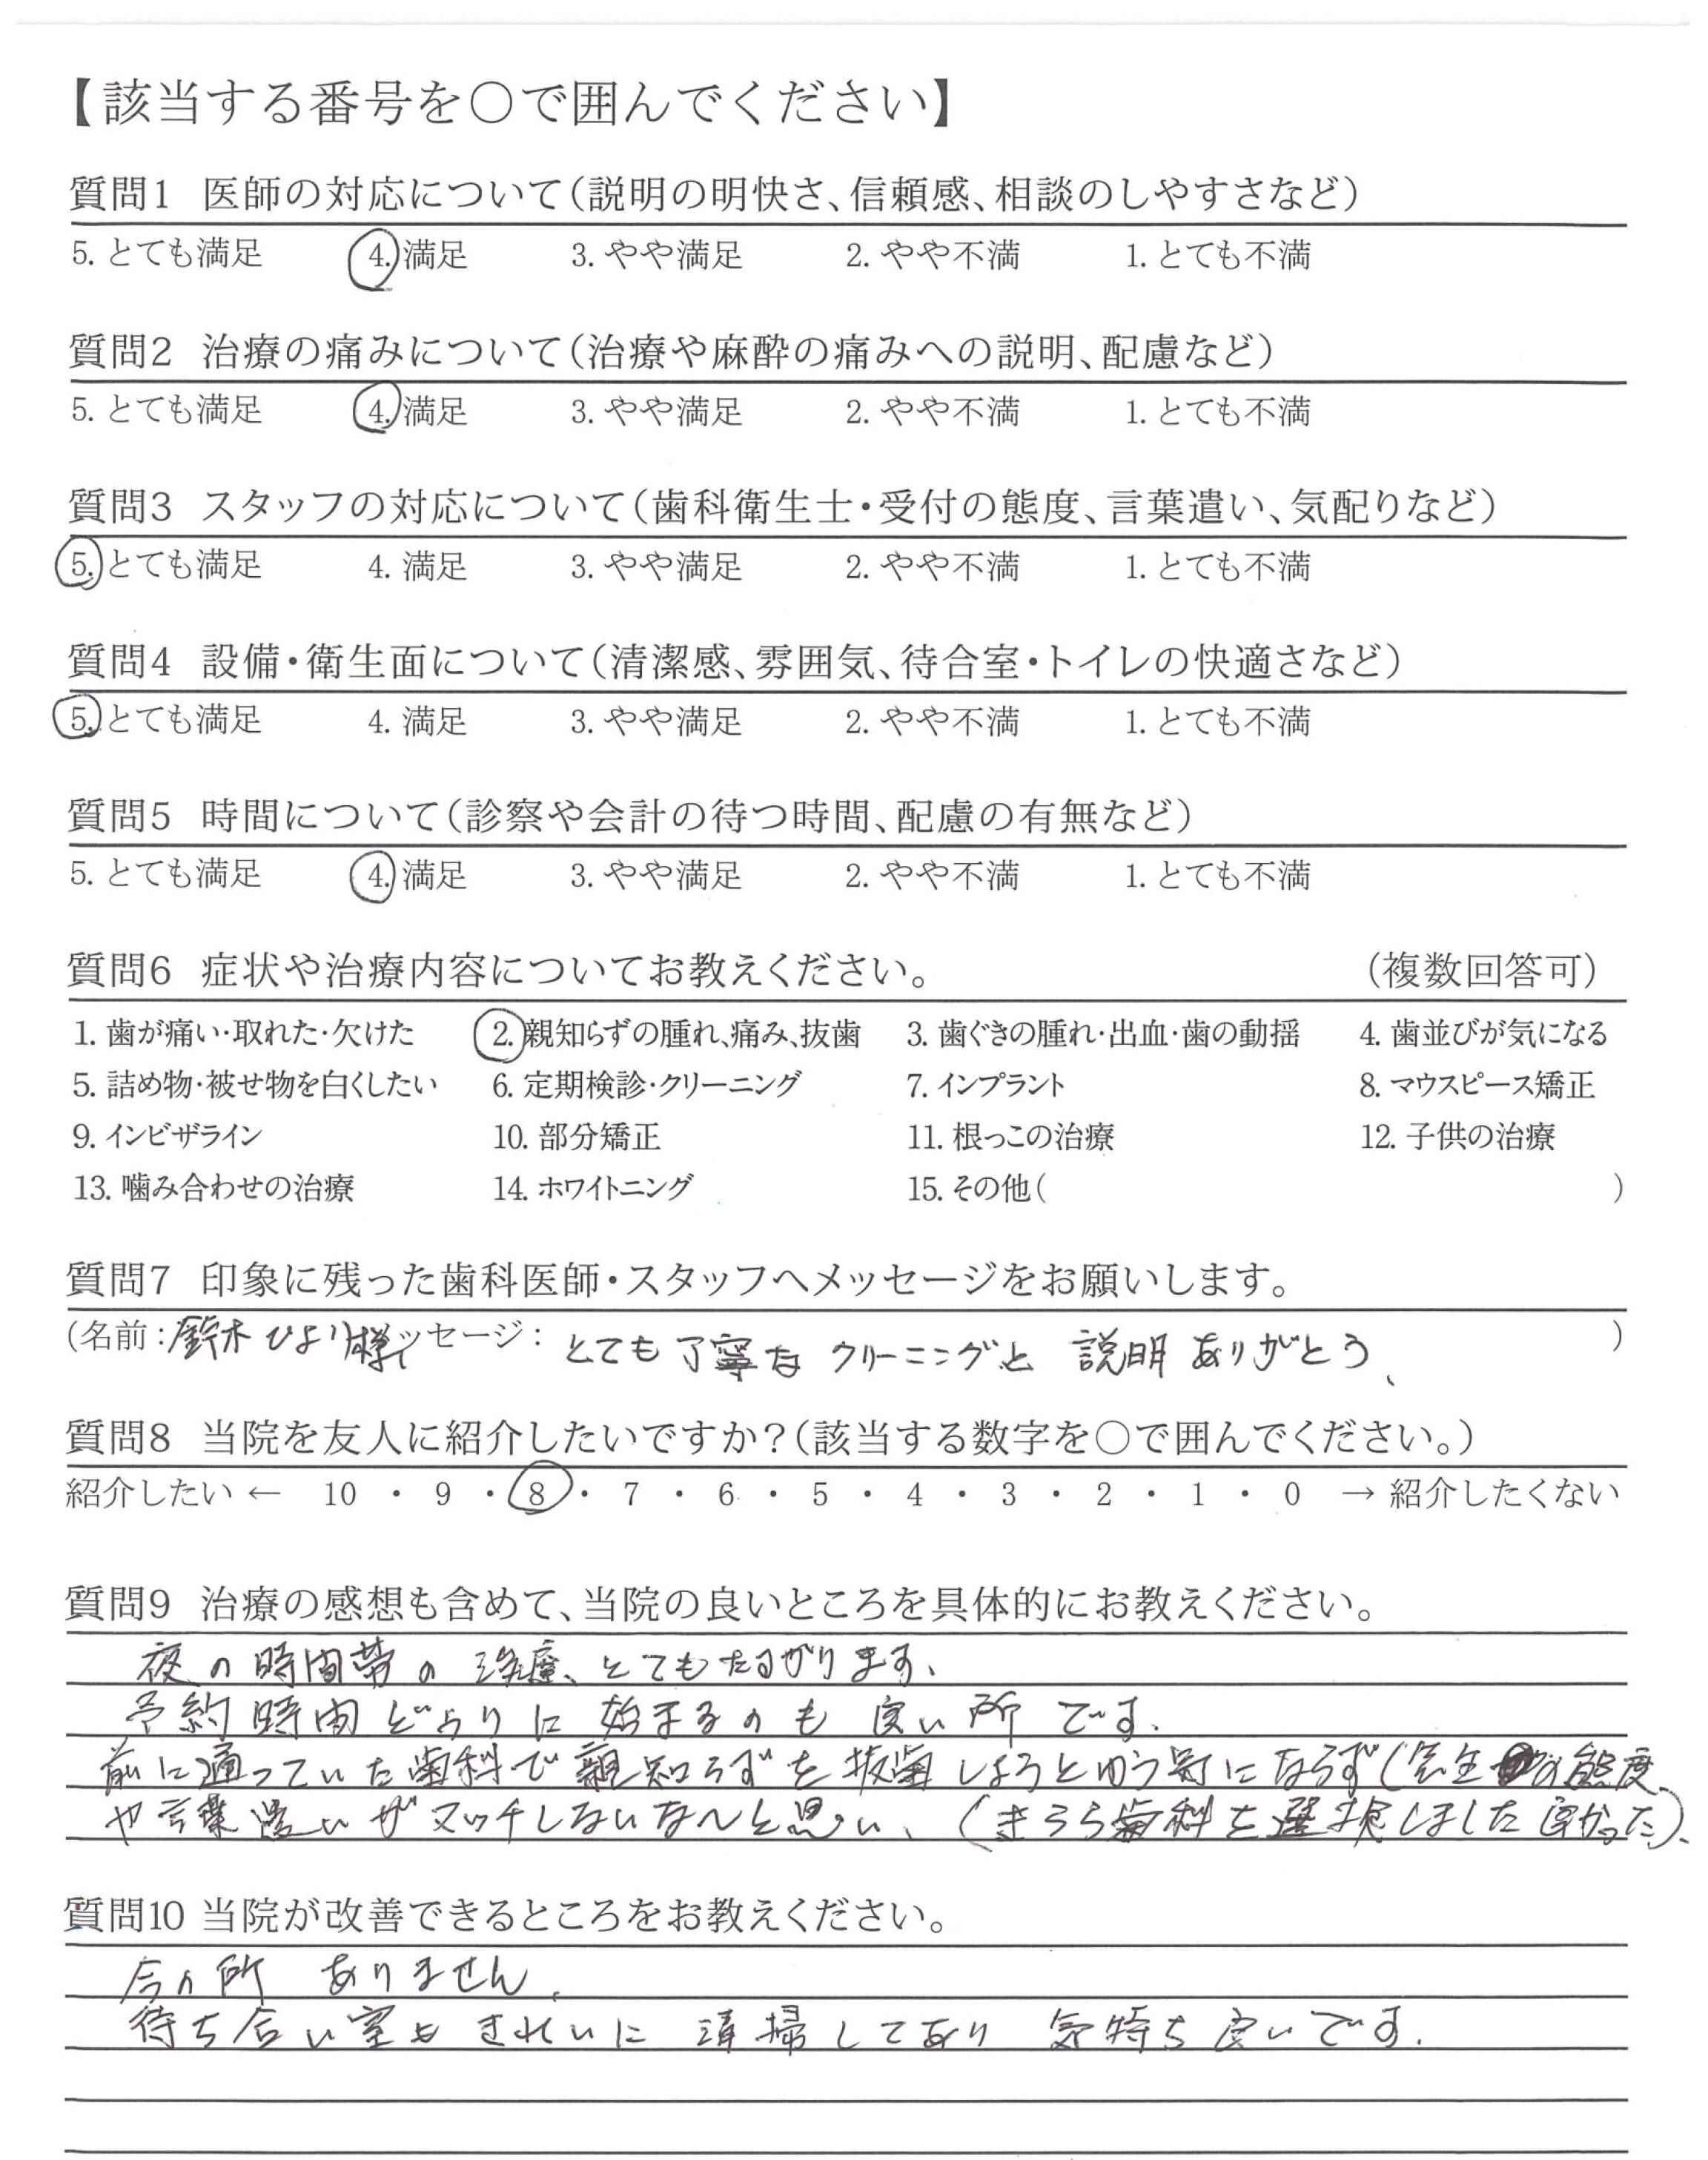 【該当する番号を○で囲んでください】
質問1 医師の対応について(説明の明快さ、信頼感、相談のしやすさなど)
5. とても満足 4. 満足 3. やや満足 2. やや不満 1. とても不満
質問2 治療の痛みについて(治療や麻酔の痛みへの説明、配慮など)
5. とても満足 4. 満足 3. やや満足 2. やや不満 1. とても不満
質問3 スタッフの対応について(歯科衛生士・受付の態度、言葉遣い、気配りなど)
5. とても満足 4. 満足 3. やや満足 2. やや不満 1. とても不満
質問4 設備・衛生面について(清潔感、雰囲気、待合室・トイレの快適さなど)
5. とても満足 4. 満足 3. やや満足 2. やや不満 1. とても不満
質問5 時間について(診察や会計の待つ時間、配慮の有無など)
5. とても満足 4. 満足 3. やや満足 2. やや不満 1. とても不満
質問6 症状や治療内容についてお教えください。 (複数回答可)
1. 歯が痛い・取れた・欠けた 2. 親知らずの腫れ、痛み、抜歯 3. 歯ぐきの腫れ・出血・歯の動揺 4. 歯並びが気になる
5. 詰め物・被せ物を白くしたい 6. 定期検診・クリーニング 7. インプラント 8. マウスピース矯正
9. インビザライン 10. 部分矯正 11. 根っこの治療 12. 子供の治療
13. 噛み合わせの治療 14. ホワイトニング 15. その他( )
質問7 印象に残った歯科医師・スタッフへメッセージをお願いします。
(名前:鈴木ひより様 メッセージ: とても丁寧なクリーニングと説明ありがとう、 )
質問8 当院を友人に紹介したいですか?(該当する数字を○で囲んでください。)
紹介したい ← 10 ・ 9 ・ 8 ・ 7 ・ 6 ・ 5 ・ 4 ・ 3 ・ 2 ・ 1 ・ 0 → 紹介したくない
質問9 治療の感想も含めて、当院の良いところを具体的にお教えください。
夜の時間帯の治療、とてもたすかります、
予約時間どうりに始まるのも良い所です.
前に通っていた歯科で親知らずを抜歯しようとゆう気にならず(先生の態度
や言葉遣いがマッチしないなぁと思い、(きらら歯科を選択しました良かった)、
質問10 当院が改善できるところをお教えください。
今の所 ありません、
待ち合い室もきれいに清掃してあり気持ち良いです.